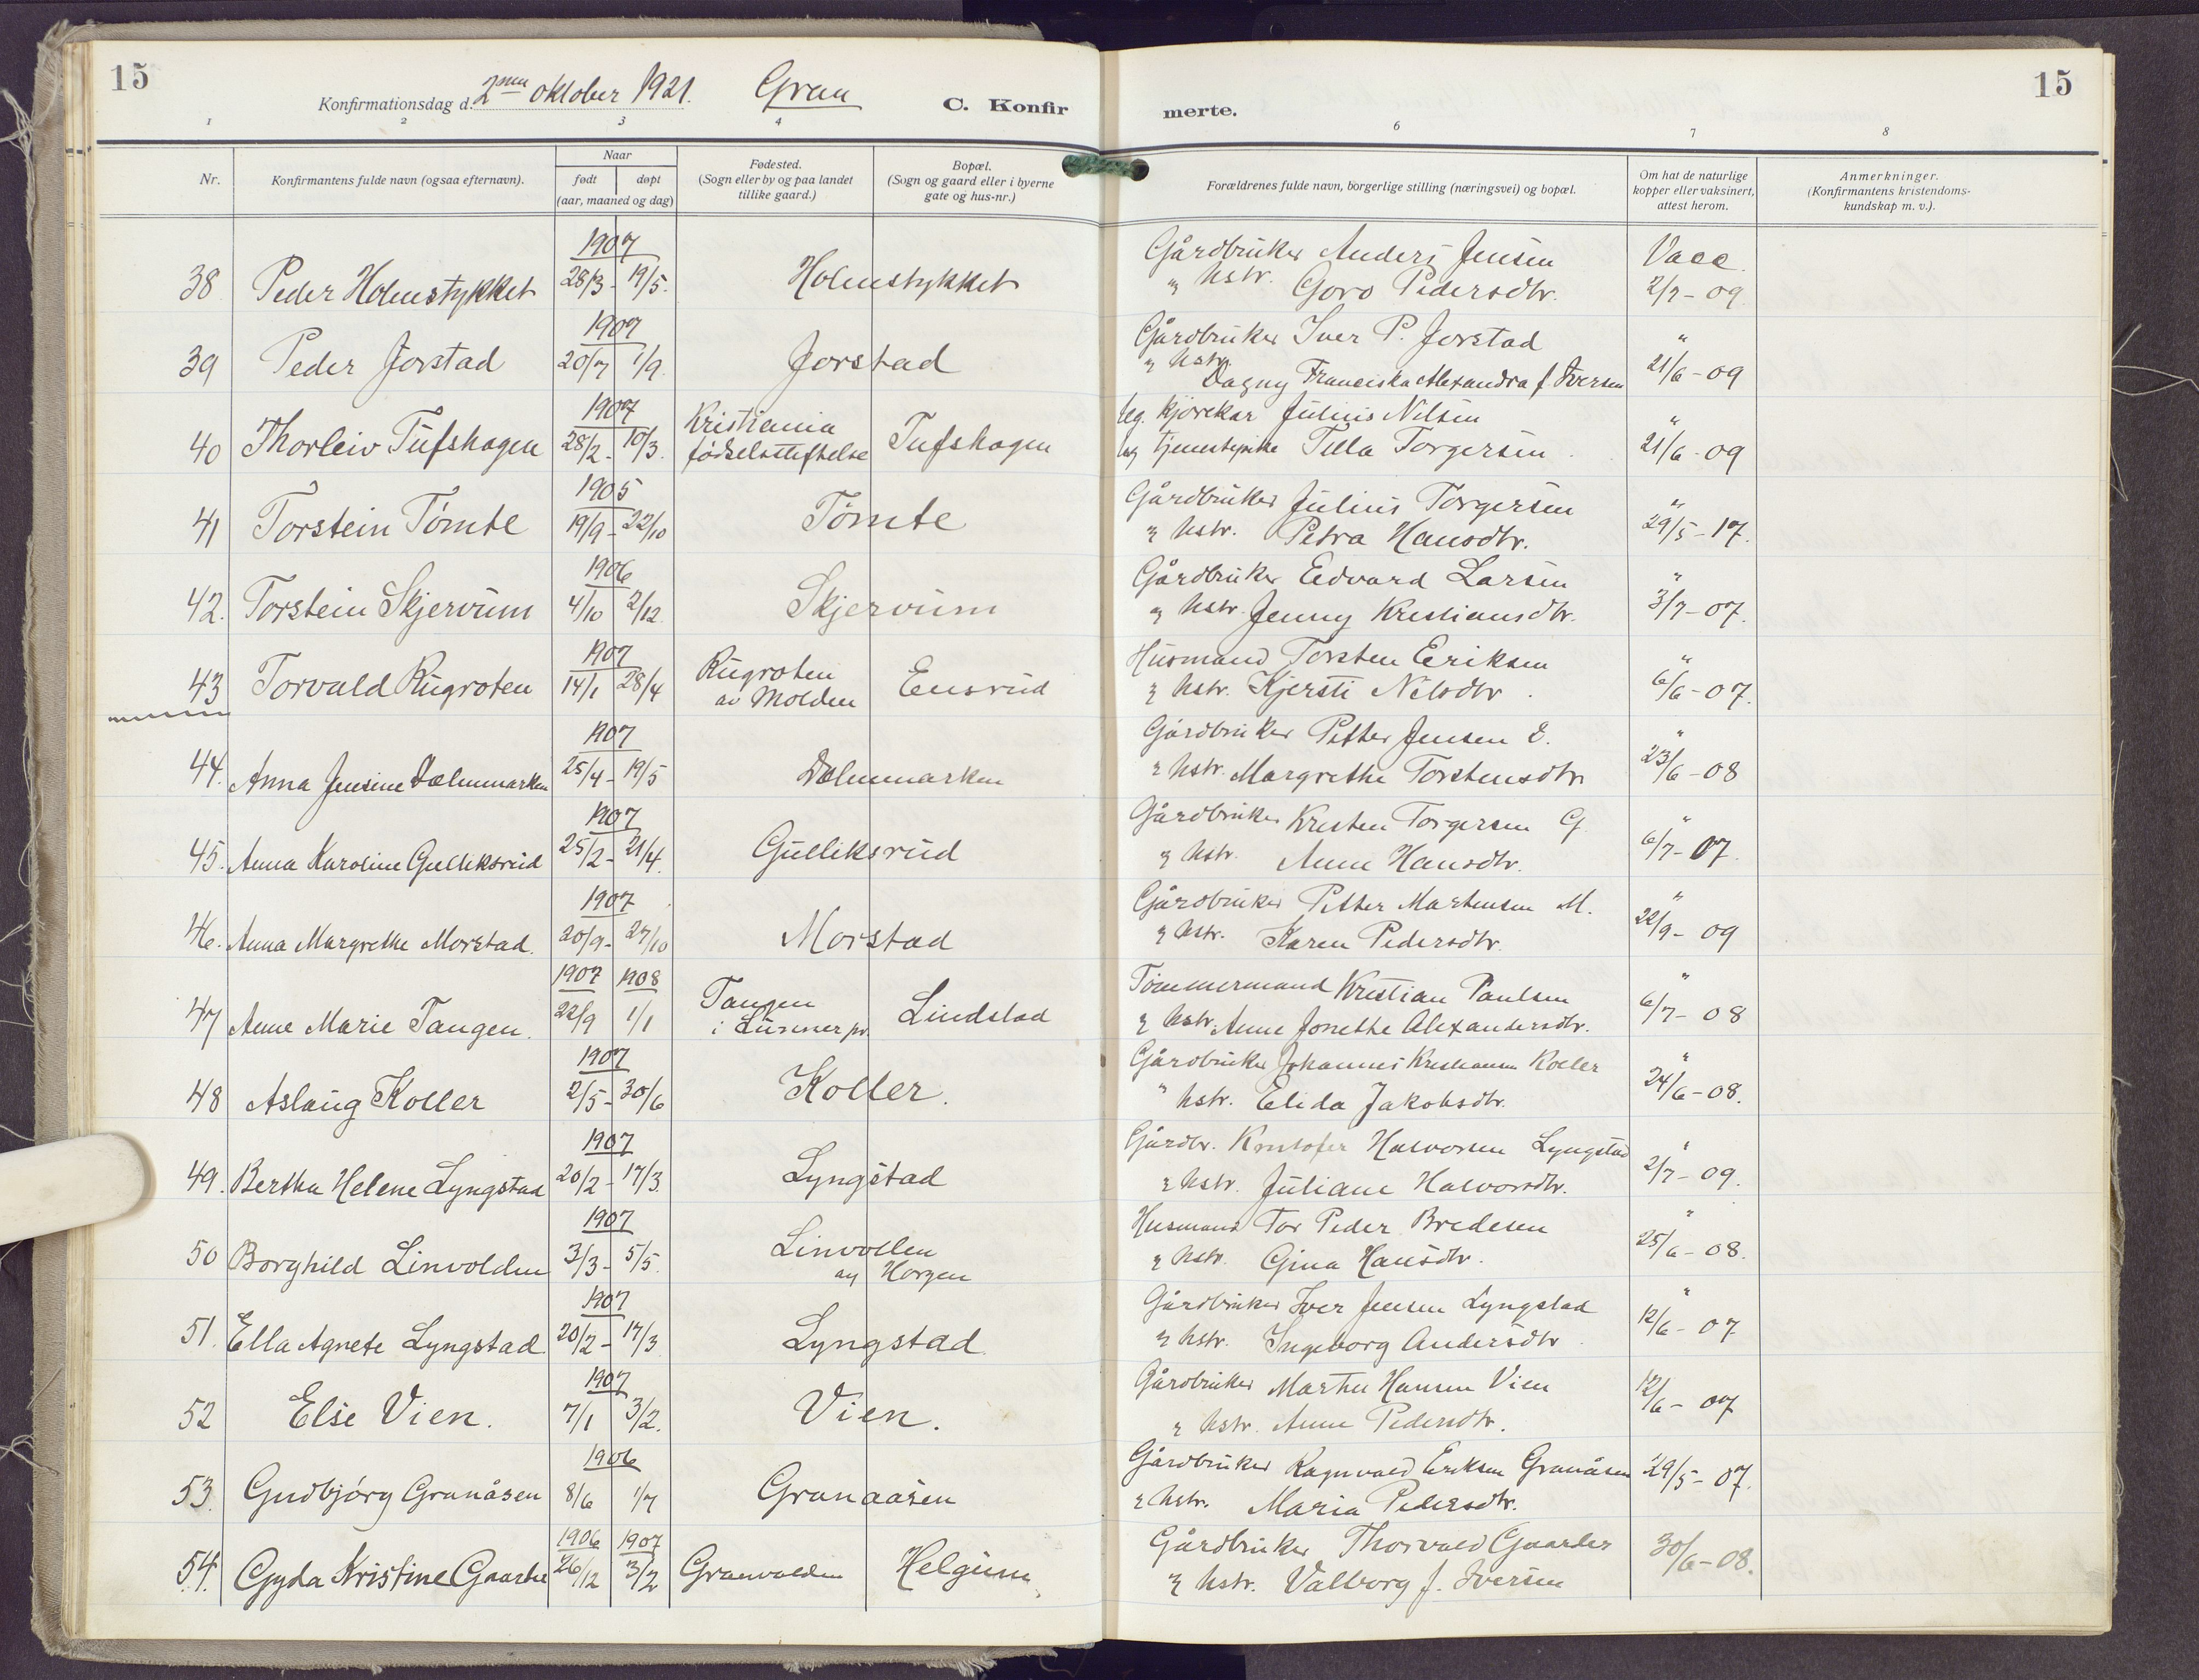 15
Konfirmationsdag d. 2nen oktober 1921. Gran C. Konfir
merte. 15
1 2 3 4
6 7 8
Nr. Konfirmantens fulde navn (ogsaa efternavn). Naar født døpt (aar, maaned og dag) Fødested. (Sogn eller by og paa landet tillike gaard.) Bopæl. (Sogn og gaard eller i byerne gate og hus-nr.)
Forældrenes fulde navn, borgerlige stilling (næringsvei) og bopæl. Om hat de naturlige kopper eller vaksinert, attest herom. Anmerkninger. (Konfirmantens kristendoms-kundskap m. v.).
1907 Gårdbruker Anders Jensen Vacc.
38 Peder Holmstykket 28/3 - 19/5. Holmstykket & hstr. Goro Pedersdtr. 2/7 - 09
1907 Gårdbruker Iver P. Jorstad "
39 Peder Jorstad 20/7 1/9. Jorstad & hstr. Dagny Franciska Alexandra f. Iversen 21/6 - 09
1907 Kristiania Ug. kjørekar Julius Nilsen "
40 Thorleiv Tufshagen 28/2 - 10/3. fødselsstiftelse Tufshagen og tjenestepike Tilla Torgersen 21/6 - 09
1905 Gårdbruker Julius Torgersen "
41 Torstein Tømte 19/9 - 22/10 Tømte & hstr. Petra Hansdtr. 29/5 - 17.
1906 Gårdbruker Edvard Larsen "
42. Torstein Skjervum 4/10 2/12. Skjervum & hstr. Jenny Kristiansdtr. 3/7 - 07.
1907 Rugroten Husmand Torsten Eriksen "
43 Torvald Rugroten 14/1 28/4 av Molden Ensrud & hstr. Kjersti Nilsdtr. 6/6 - 07.
1907 Gårdbruker Petter Jensen D. "
44. Anna Jensine Dælenmarken 25/4 - 19/5 Dælenmarken & hstr. Margrethe Torstensdtr. 23/6 - 08
1907 Gårdbruker Kristen Torgersen G. "
45. Anna Karoline Gulliksrud 25/2 - 21/4. Gulliksrud & hstr. Anne Hansdtr. 6/7 - 07.
1907 Gårdbruker Petter Martensen M. "
46. Anna Margrethe Morstad. 20/9 - 27/10 Morstad & hstr. Karen Pedersdtr. 22/9 - 09
1907 1908 Tangen Tømmermand Kristian Paulsen "
47 Anne Marie Tangen. 22/9 1/1 i Lunner pr. Lindstad & hstr. Anne Jonette Alexandersdtr. 6/7 - 08
1907 Gårdbruker Johannes Kristiansen Koller "
48 Aslaug Koller 2/5 - 30/6 Koller. " hstr. Elida Jakobsdtr. 24/6 - 08.
1907 Gårdbr. Kristofer Halvorsen Lyngstad "
49. Bertha Helene Lyngstad 20/2 - 17/3. Lyngstad & hstr. Juliane Halvorsdtr. 2/7 - 09.
1907 Linvollen Husmand Tor Peder Bredesen "
50 Borghild Linvolden 3/3 - 5/5. av Horgen & hstr. Gina Hansdtr. 25/6 - 08.
1907 Gårdbruker Iver Jensen Lyngstad "
51. Ella Agnete Lyngstad 20/2 - 17/3 Lyngstad & hstr. Ingeborg Andersdtr 12/6 - 07
1907 Gårdbruker Marthe Hansen Vien
52 Else Vien. 7/1 3/2. Vien. & hstr. Anne Pedersdtr. 12/6 - 07
1906 Gårdbruker Ragnvald Eriksen Granåsen
53. Gudbjørg Granåsen 8/6 1/7 Granaasen & hstr. Maria Pedersdtr. 29/5 - 07.
1906 1907 Gårdbruker Thorvald Gaarder
54. Gyda Kristine Gaarder 26/12 3/2 Granvolden Helgum & hstr. Valborg f. Iversen 30/6 - 08.